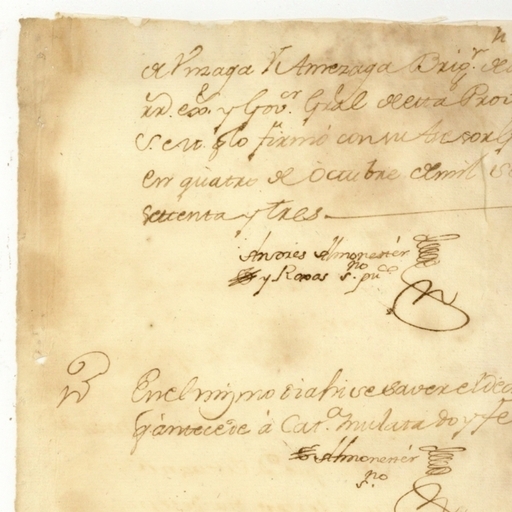 de Vnzaga Y Amezaga Brigr. de
rr. exo. y Govor. Gral de esta Prov
firmó con su Asesor
en quatro de Octubre de mil
setenta y tres.
Andres Almonester
y Roxas s.no pu.co
En el mismo dia hise saver el De
q antecede á Cat.a mulata doy fe
Almonester
s.no